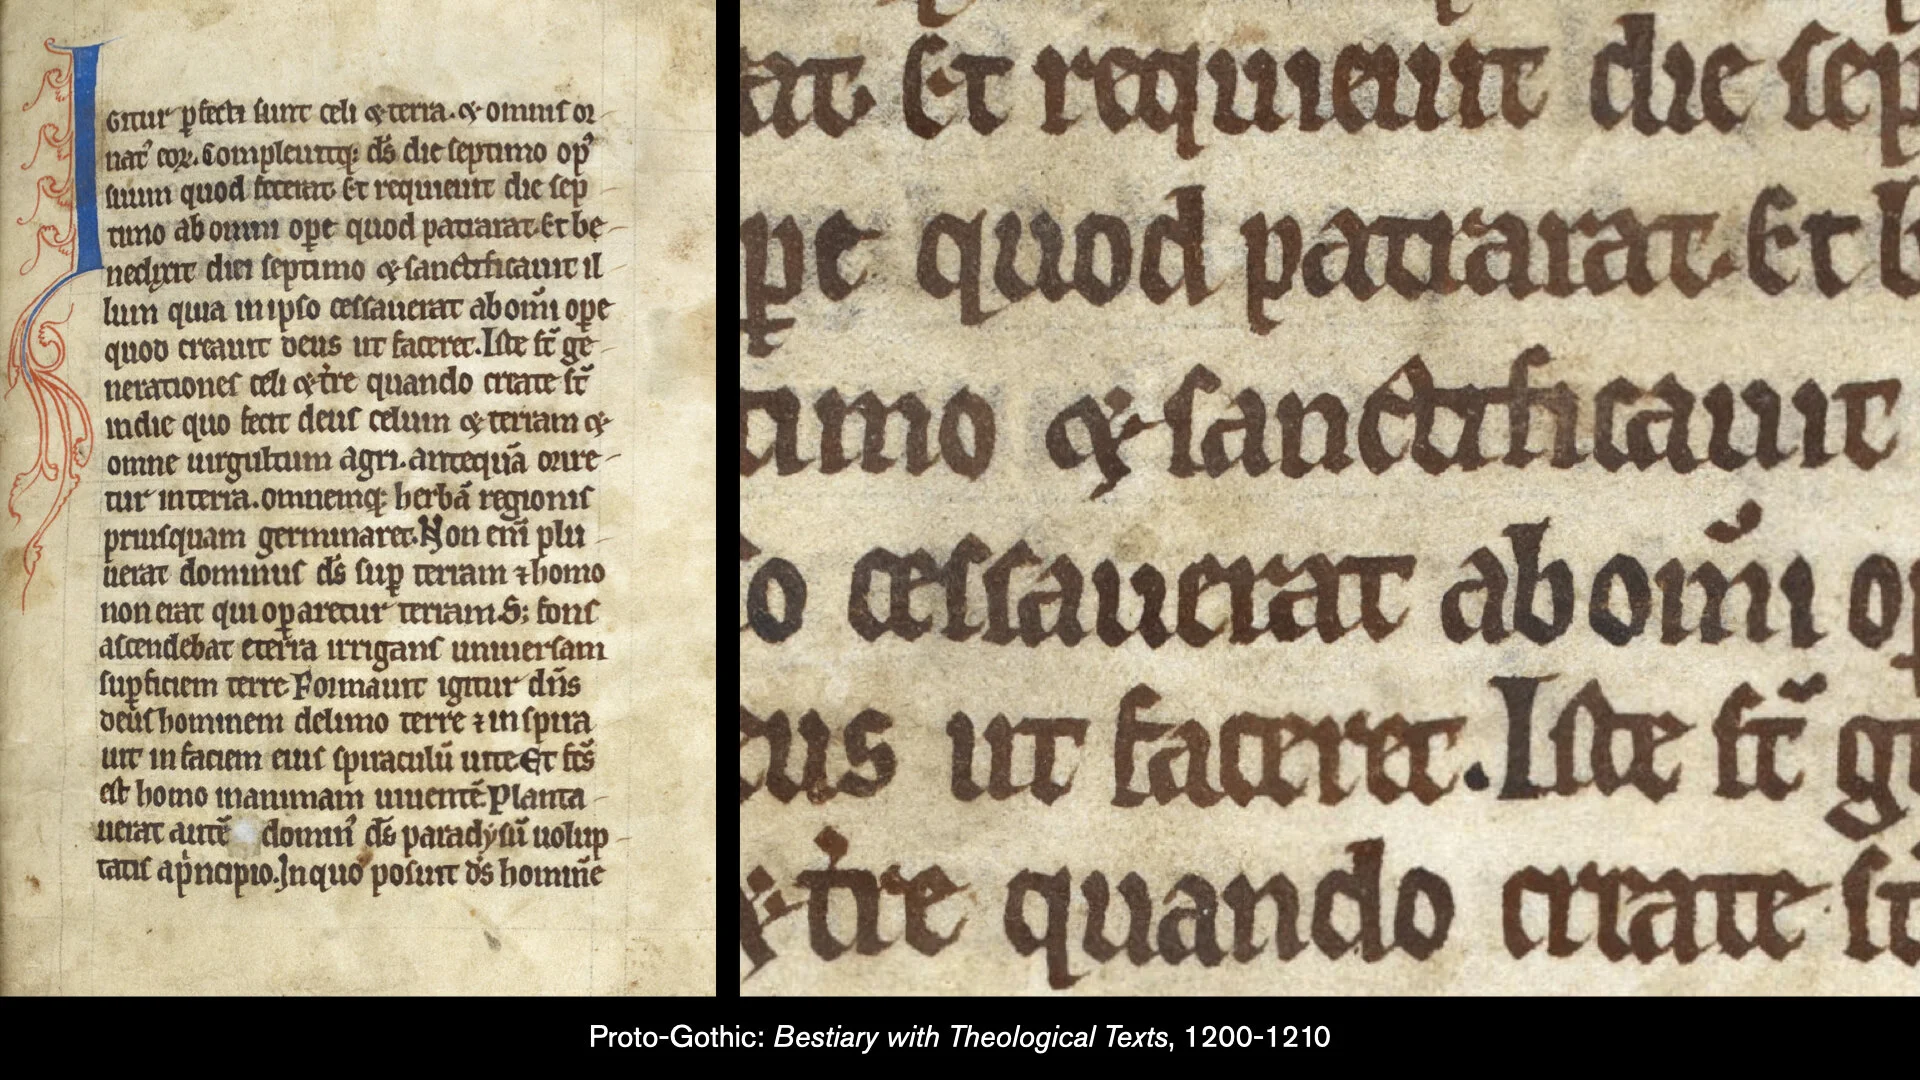 IGitur ꝑfecti sunt celi & terra. & omnis or
nat᾽ eoꝝ. Compleuitq; d̄s die septimo op᾽
suum quod fecerat. Et requieuit die sep
timo ab omni oꝑe quod patrarat. Et be-
nedixit diei septimo & sanctificauit il
lum quia in ipso cessauerat ab om̄i oꝑe
quod creauit deus ut faceret. Iste st̄ ge-
nerationes celi & tr̄e quando create st̄
in die quo fecit deus celum & terram &
omne uirgultum agri. antequā orire-
tur in terra. omnemq; herbā regionis
priusquam germinaret. Non eni̅ plu
uerat dominus d̄s suꝑ terram ⁊ homo
non erat qui oꝑaretur terram. S; fons
ascendebat e terra irrigans uniuersam
suꝑficiem terre. Formauit igitur dn̄s
deus hominem de limo terre ⁊ in spira
uit in faciem eius spiraculū uite. Et fc̄s
est homo in animam uiuentē. Planta
uerat autē domin᾽ d̄s paradysū uolup
tatis a pͥncipio. In quo posuit d̄s hominē
at. Et requieuit die sep
ꝑe quod patrarat. Et b
timo & sanctificauit
so cessauerat ab om̄i oꝑ
eus ut faceret. Iste st̄ ge
& tr̄e quando create st̄
Proto-Gothic: Bestiary with Theological Texts, 1200-1210